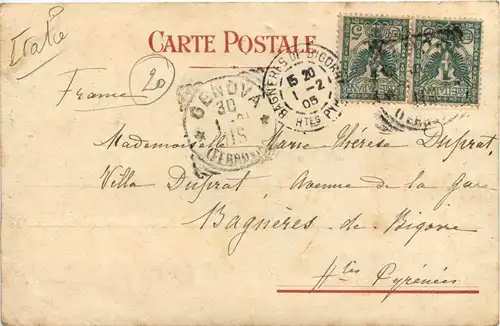 Italie
CARTE POSTALE
France
20
GENOVA
30
(FERROVIA)
BAGNÈRES DE BIGORRE
15 20
1 -2
05
HTES PYR
Mademoiselle Marie Thérèse Duprat,
Villa Duprat, Avenue de la Gare
Bagnères-de-Bigorre
Htes Pyrénées